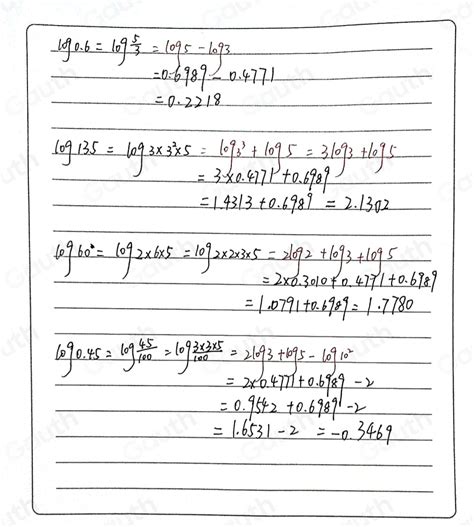 log 0.6 = log 5/3 = log 5 - log 3
= 0.6989 - 0.4771
= 0.2218
log 135 = log 3×3²×5 = log 3³ + log 5 = 3 log 3 + log 5
= 3×0.4771 + 0.6989
= 1.4313 + 0.6989 = 2.1302
log 60 = log 2×6×5 = log 2×2×3×5 = 2 log 2 + log 3 + log 5
= 2×0.3010 + 0.4771 + 0.6989
= 1.0791 + 0.6989 = 1.7780
log 0.45 = log 45/100 = log 3×3×5/100 = 2 log 3 + log 5 - log 10²
= 2×0.4771 + 0.6989 - 2
= 0.9542 + 0.6989 - 2
= 1.6531 - 2 = -0.3469